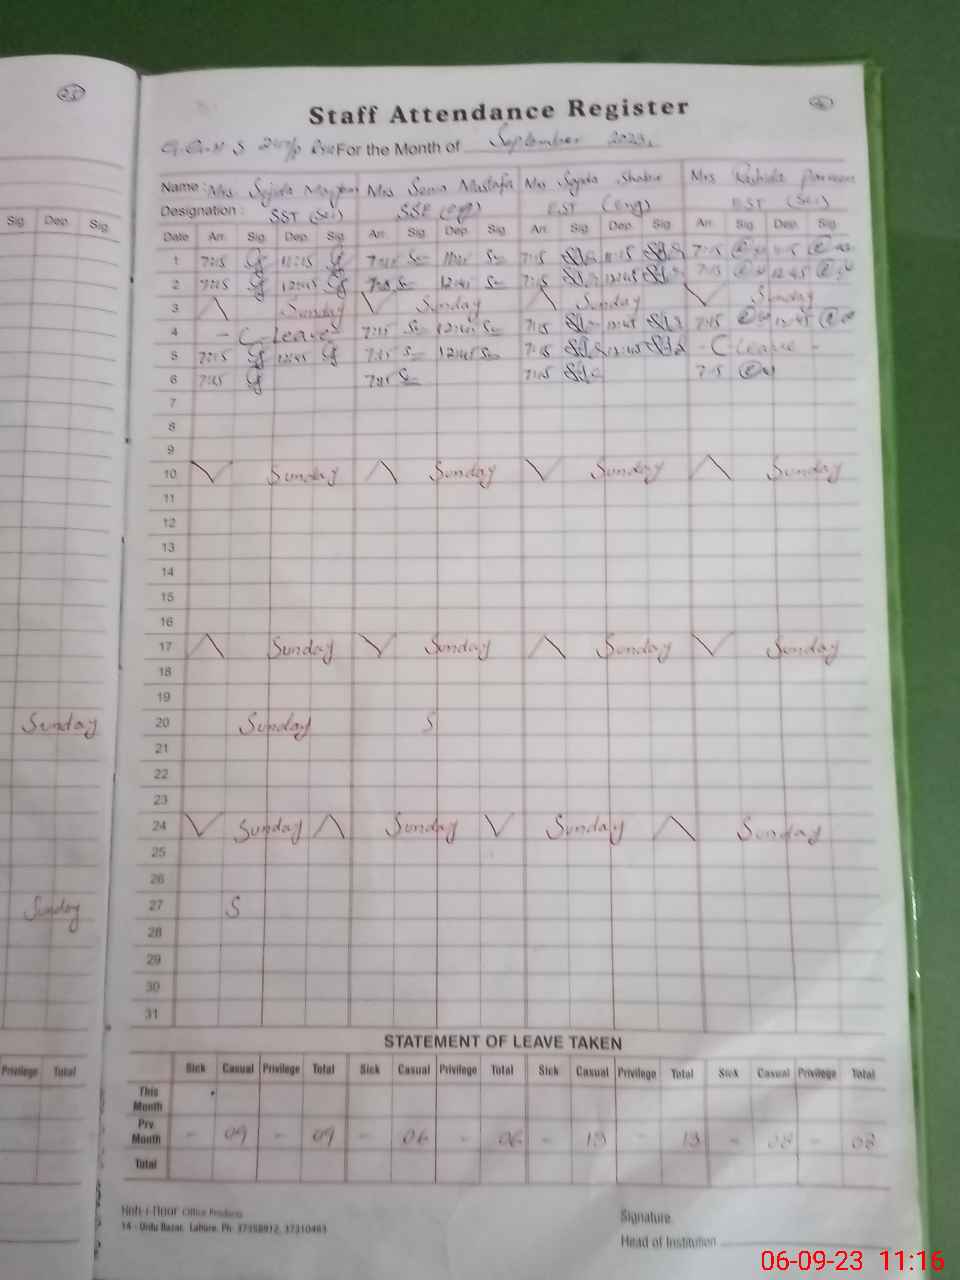 Staff Attendance Register
For the Month of September 2023
Name: Mrs Mrs Mustafa Mrs Shabir Mrs Rashida Parveen
Designation: SST (Sci) SSE EST (Eng) EST (Sci)
Sig. Dep. Sig.
Date Arr. Sig. Dep. Sig. Arr. Sig. Dep. Sig. Arr. Sig. Dep. Sig. Arr. Sig. Dep. Sig.
1 7:15 11:15 7:15 11:15 7:15 11:15 7:15 11:15
2 7:15 12:45 7:15 12:45 7:15 12:45 7:15 12:45
3 Sunday Sunday Sunday Sunday
4 - C-leave 7:15 12:45 7:15 12:45 7:15 12:45
5 7:15 12:45 7:15 12:45 7:15 12:45 - C leave -
6 7:15 7:15 7:15 7:15
7
8
9
10 Sunday Sunday Sunday Sunday
11
12
13
14
15
16
17 Sunday Sunday Sunday Sunday
18
19
Sunday 20 Sunday S
21
22
23
24 Sunday Sunday Sunday Sunday
25
26
Sunday 27 S
28
29
30
31
STATEMENT OF LEAVE TAKEN
Privilege Total Sick Casual Privilege Total Sick Casual Privilege Total Sick Casual Privilege Total Sick Casual Privilege Total
This
Month
Prv.
Month - 09 - 09 - 06 - 06 - 13 - 13 - 08 - 08
Total
Koh-i-Noor Office Products
14 - Urdu Bazar, Lahore. Ph: 37358912, 37310463
Signature
Head of Institution
06-09-23 11:16